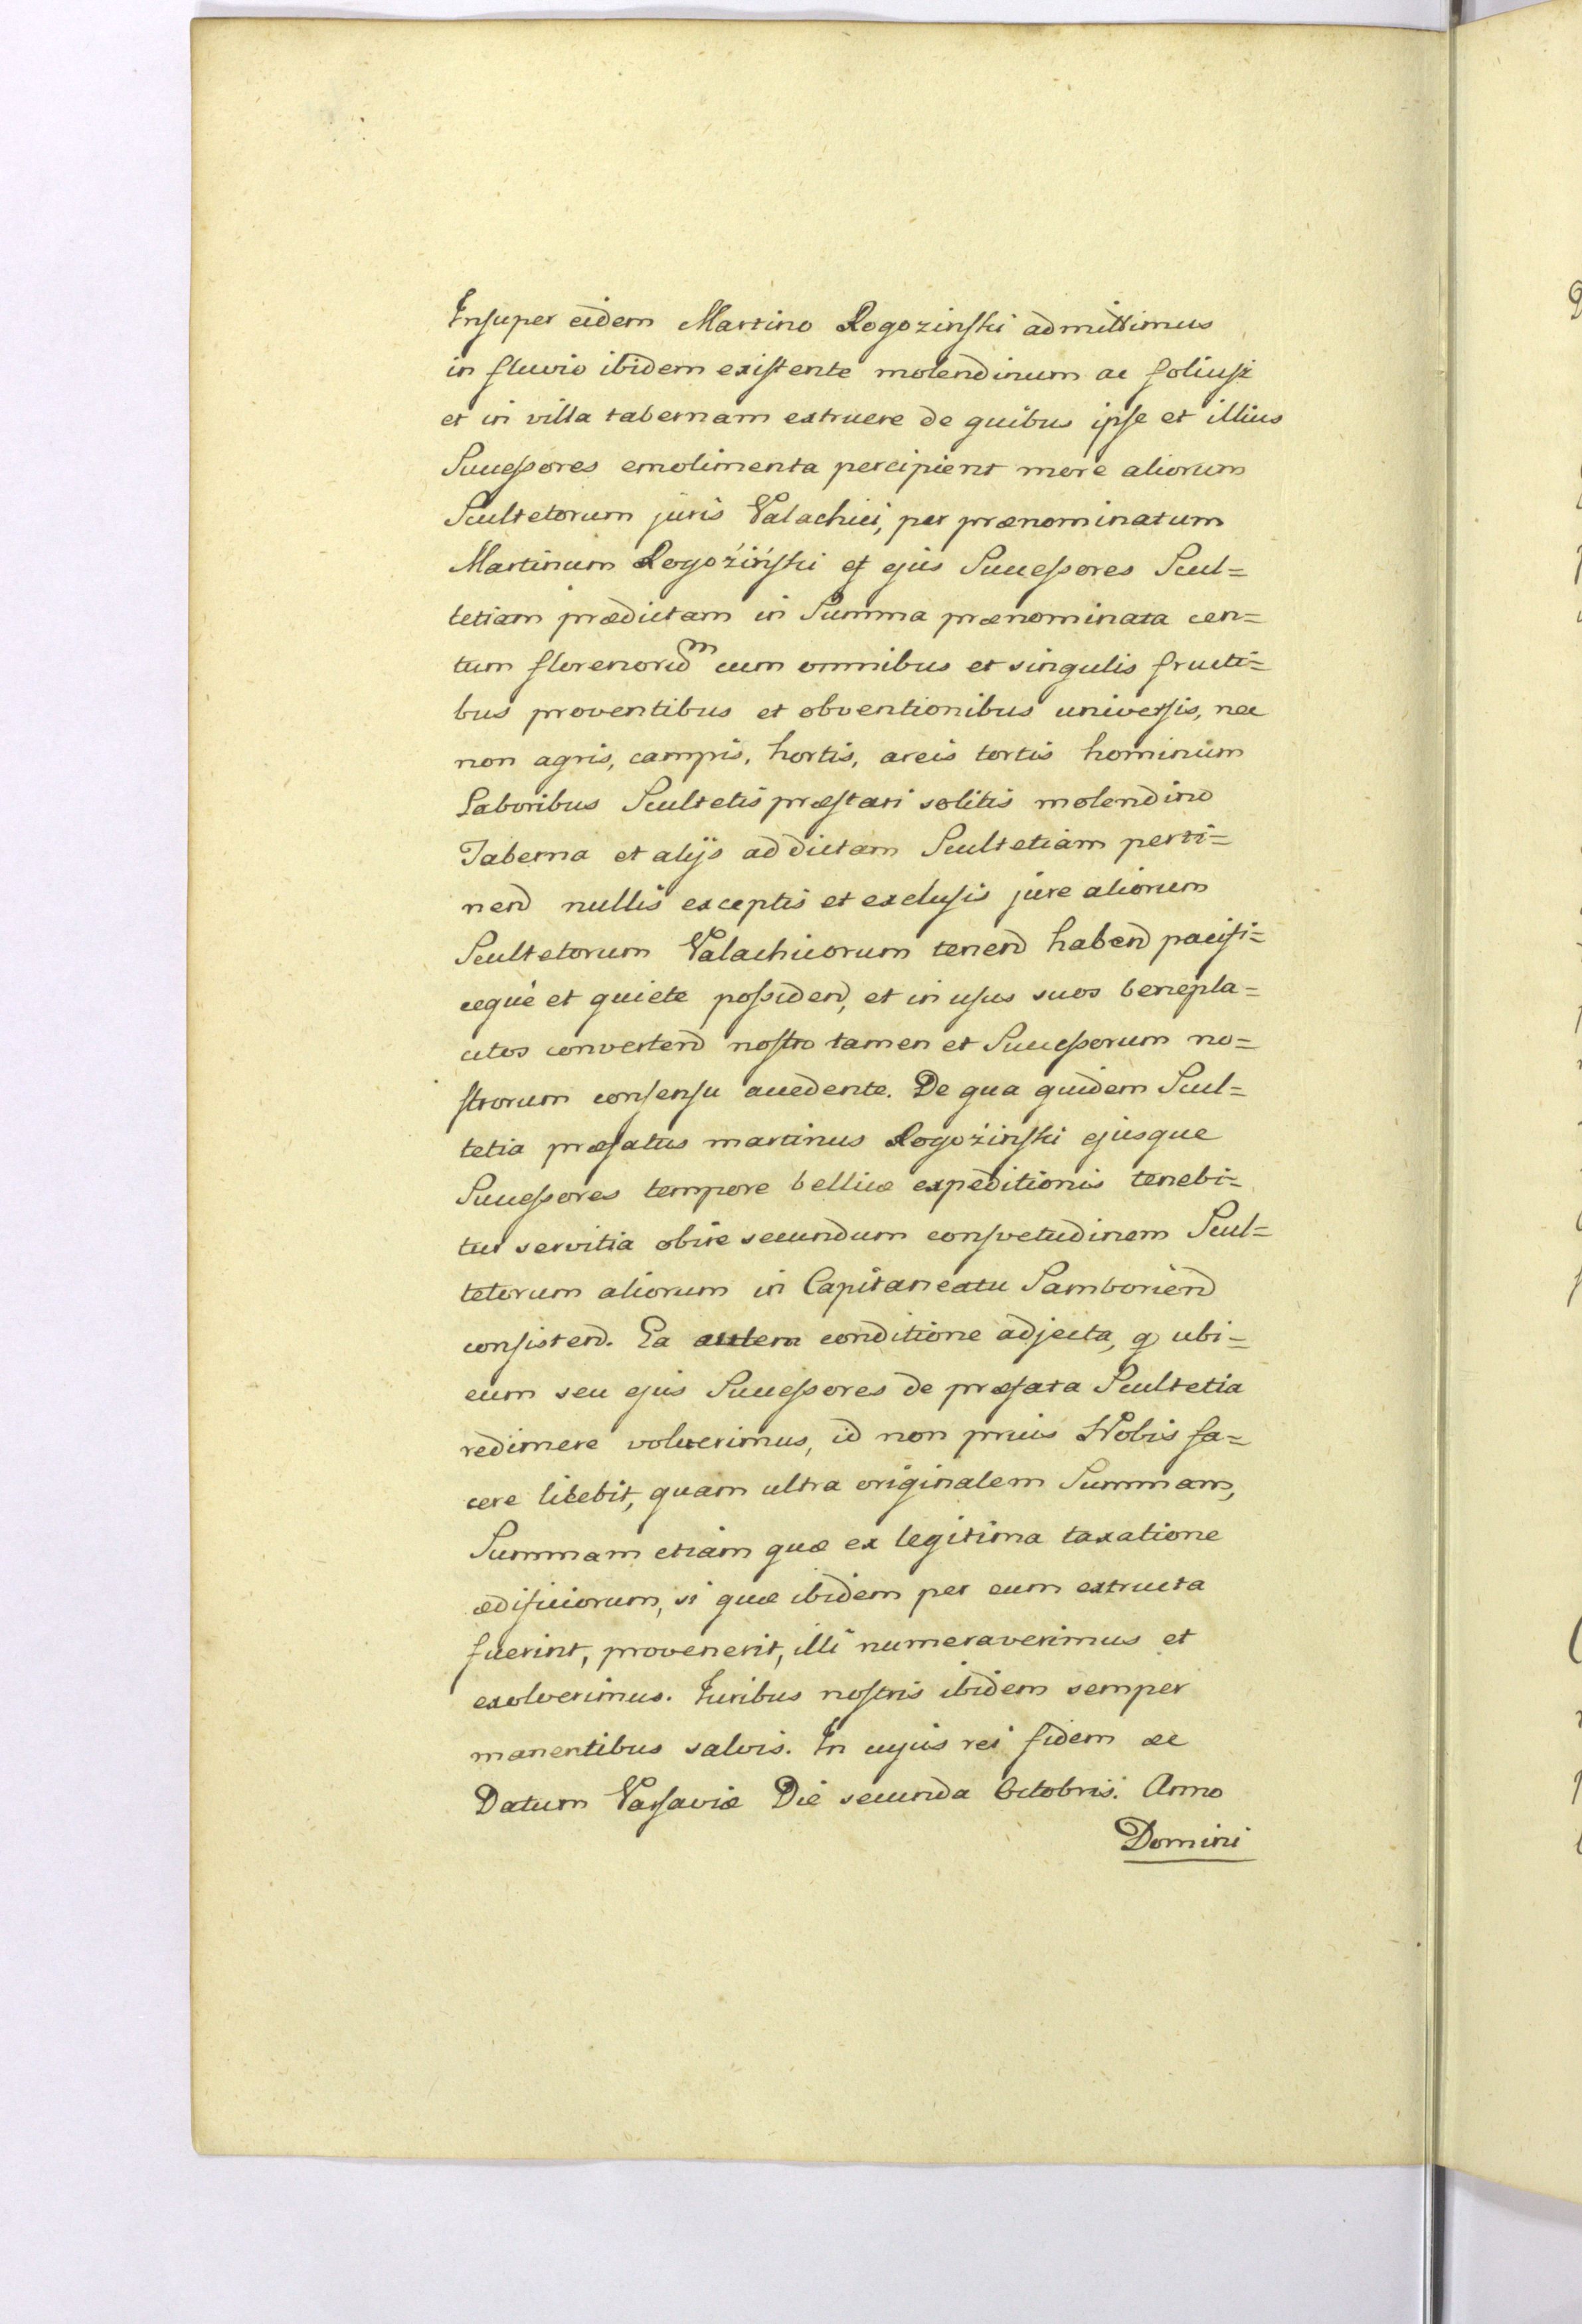 Insuper eidem Martino Rogozinski admittimus
in fluvio ibidem existente molendinum ac foliusz
et in villa tabernam extruere de quibus ipse et illius
Successores emolimenta percipient more aliorum
Scultetorum juris Valachici, per prænominatum
Martinum Rogoźiński et ejus Successores Scul=
tetiam prædictam in Summa prænominata cen=
tum florenorum cum omnibus et singulis fructi=
bus proventibus et obventionibus universis, nec
non agris, campis, hortis, areis tortis hominum
Laboribus Scultetis præstari solitis molendino
Taberna et alijs ad dictam Scultetiam perti=
nend nullis exceptis et exclusis jure aliorum
Scultetorum Valachicorum tenend habend pacifi=
ceque et quiete possidend, et in usus suos benepla=
citos convertend nostro tamen et Successorum no=
strorum consensu accedente. De qua quidem Scul=
tetia præfatus martinus Rogoźinski ejusque
Successores tempore bellicæ expeditionis tenebi=
tur servitia obire secundum consvetudinem Scul=
tetorum aliorum in Capitaneatu Samboriend
consistend. Ea autem conditione adjecta, q ubi=
eum seu ejus Successores de præfata Scultetia
redimere voluerimus, id non prius Nobis fa=
cere licebit, quam ultra originalem Summam,
Summam etiam quæ ex legitima taxatione
ædificiorum, si quæ ibidem per eum extructa
fuerint, provenerit, illi numeraverimus et
exolverimus. Iuribus nostris ibidem semper
manentibus salvis. In cujus rei fidem ac
Datum Varsaviæ Die secunda Octobris. Anno
Domini